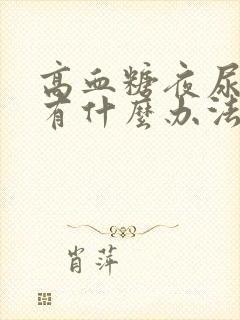 高血糖夜尿
有什麼办法
肖萍